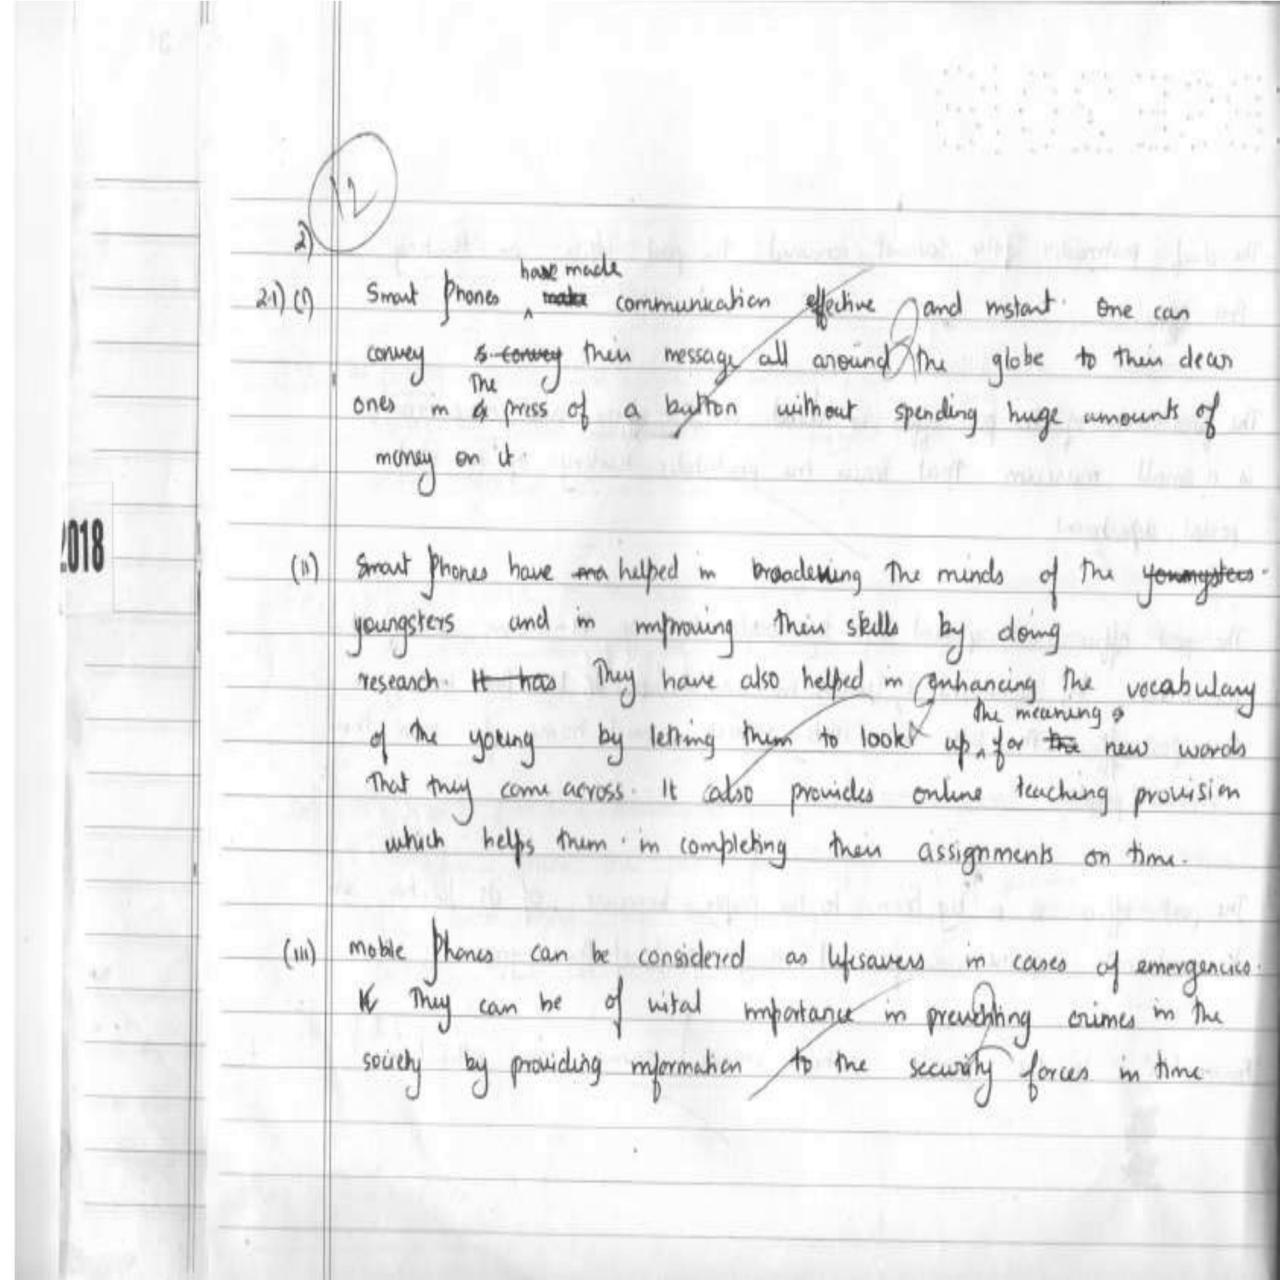 12
2)
have made
2.1) (i) Smart phones ^ make communication effective and instant. One can
convey & convey their message all around the globe to their dear
The
ones in a press of a button without spending huge amounts of
money on it.
2018
(ii) Smart phones have ma helped in broadening the minds of the youngsters.
youngsters and in improving their skills by doing
research. It has They have also helped in enhancing the vocabulary
the meaning
of the young by letting them to look up ^ for the new words
that they come across. It also provides online teaching provision
which helps them in completing their assignments on time.
(iii) mobile phones can be considered as lifesavers in cases of emergencies.
They can be of vital importance in preventing crimes in the
society by providing information to the security forces in time